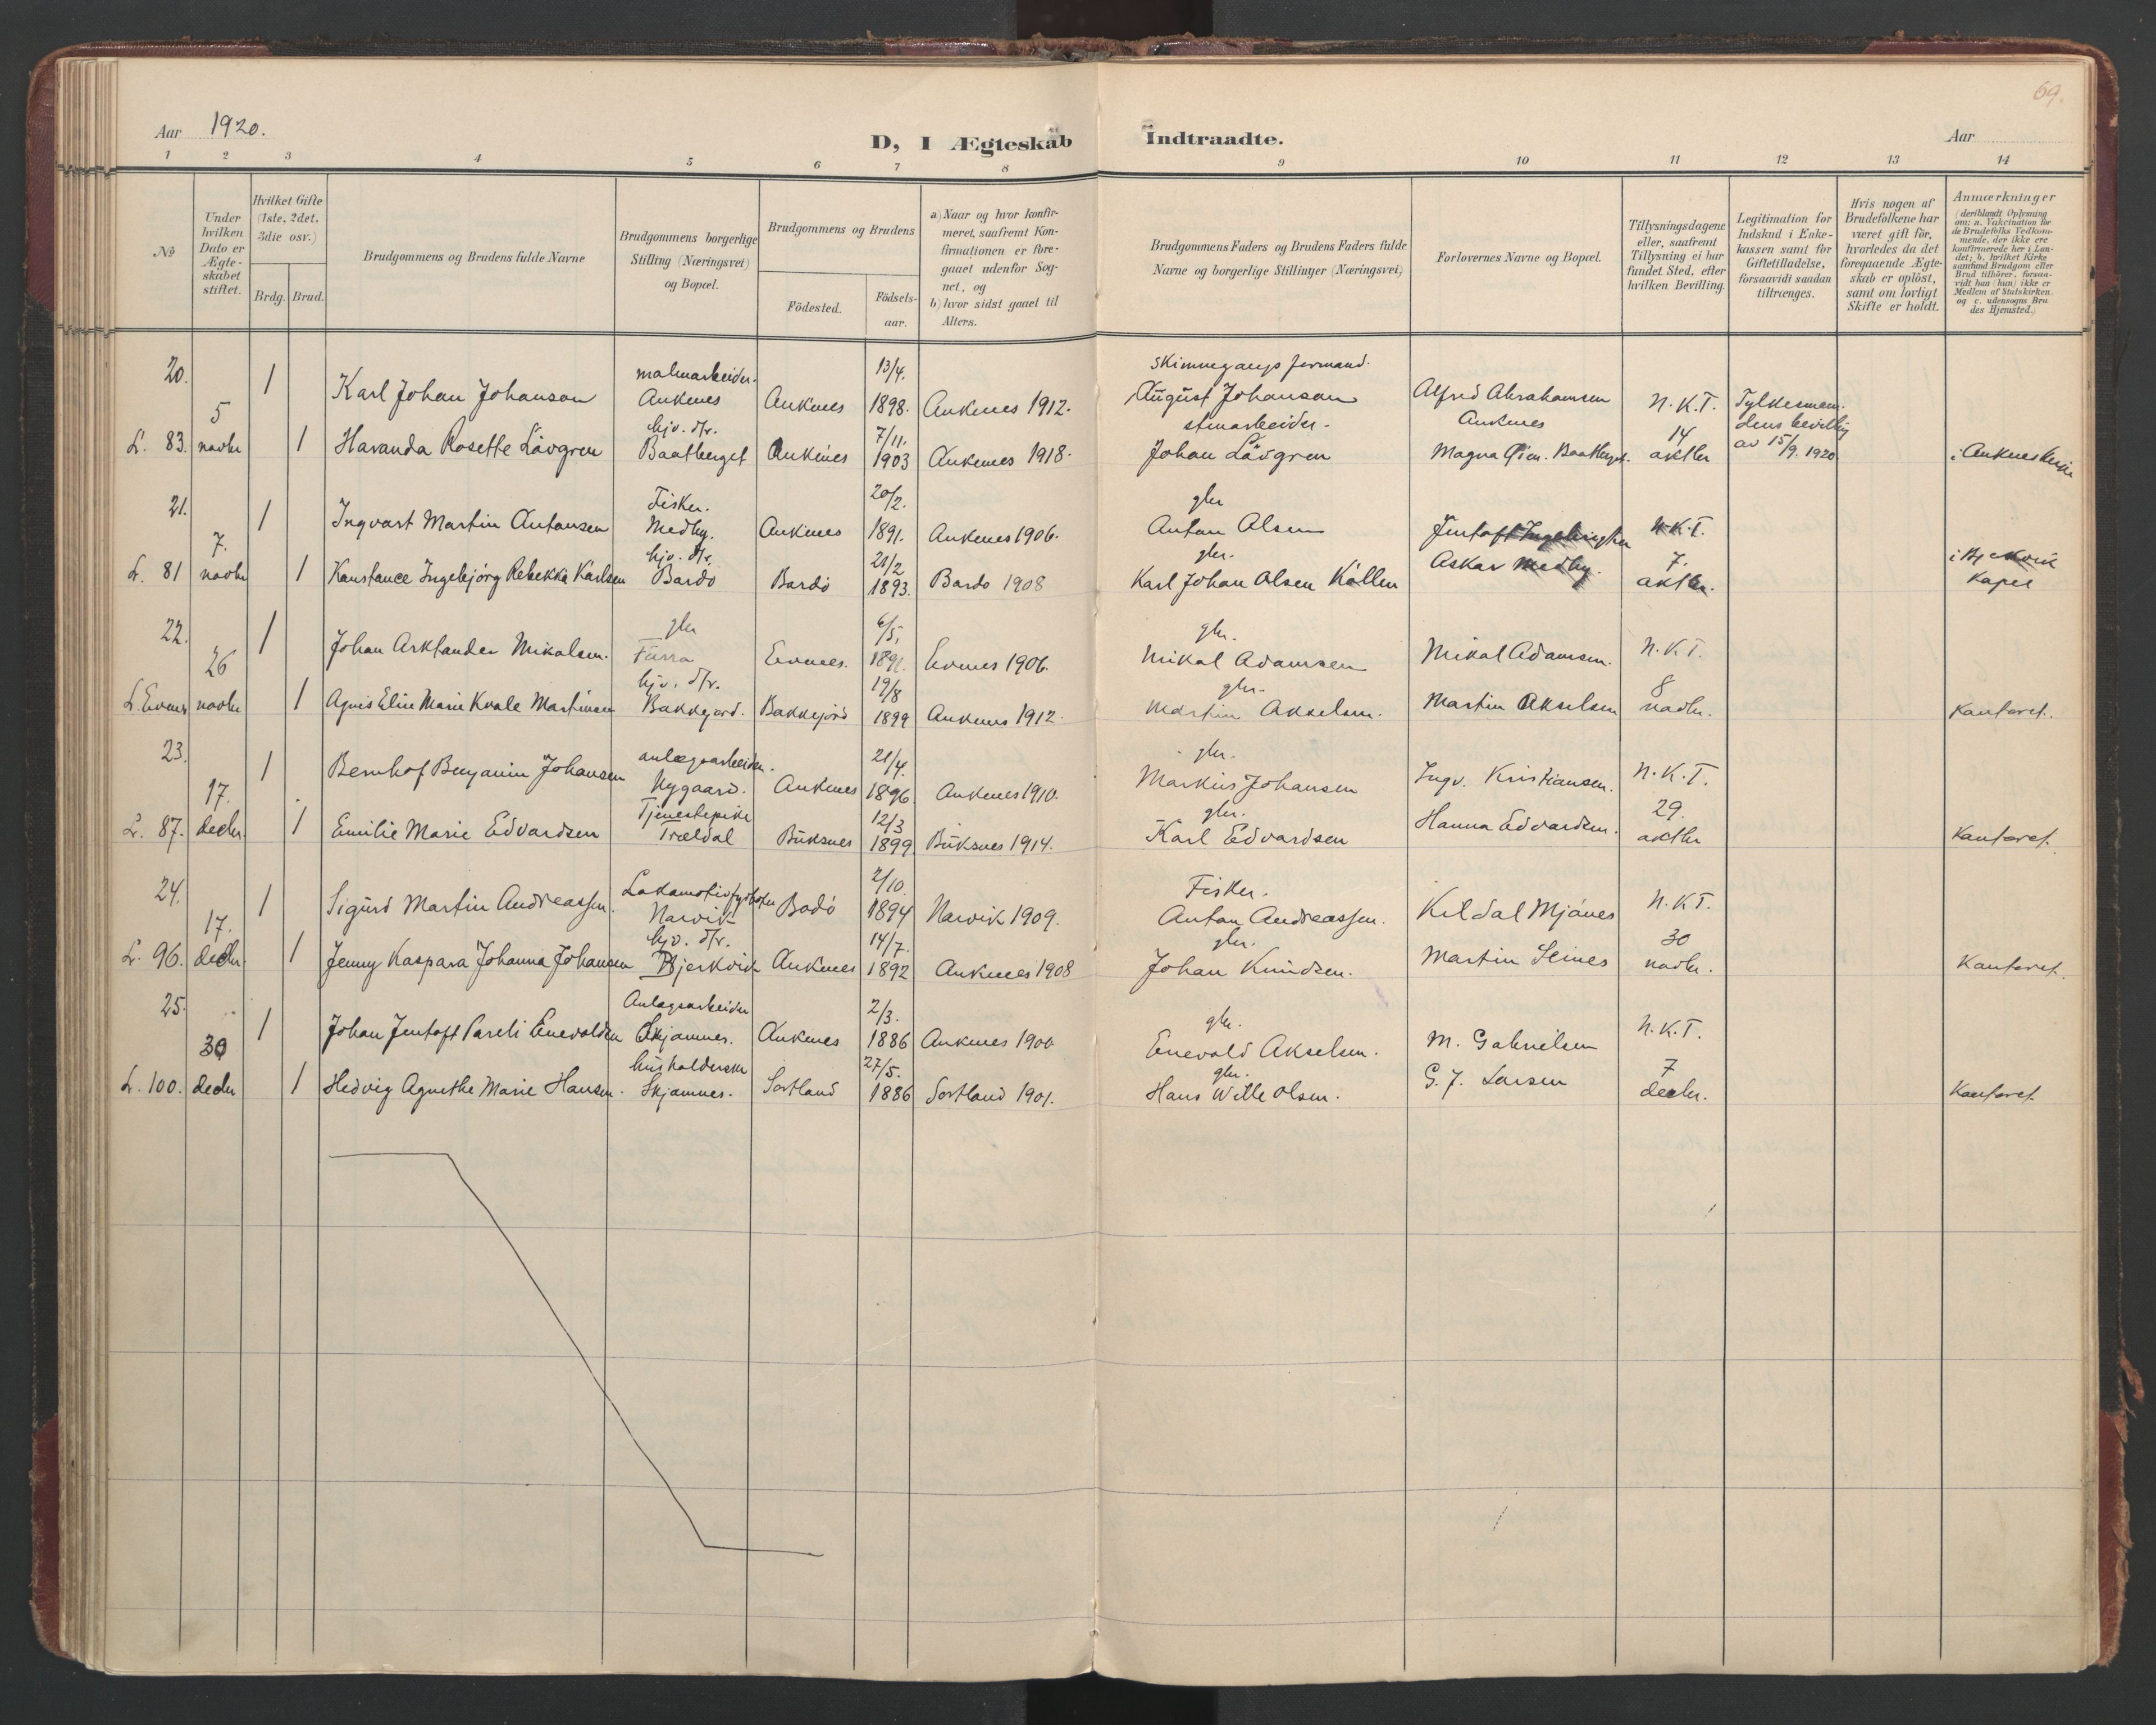 69.
Aar 1920.
D, I Ægteskab Indtraadte.
Aar
1 2 3 4 5 6 7 8 9 10 11 12 13 14
No
Under hvilken Dato er Ægte-skabet stiftet.
Hvilket Gifte (1ste, 2det, 3die osv.)
Brdg. Brud.
Brudgommens og Brudens fulde Navne
Brudgommens borgerlige Stilling (Næringsvei) og Bopæl.
Brudgommens og Brudens
Födested.
Födsels-aar.
a) Naar og hvor konfir-meret, saafremt Kon-firmationen er fore-gaaet udenfor Sog-net, og
b) hvor sidst gaaet til Alters.
Brudgommens Faders og Brudens Faders fulde Navne og borgerlige Stillinger (Næringsvei)
Forlovernes Navne og Bopæl.
Tillysningsdagene eller, saafremt Tillysning ei har fundet Sted, efter hvilken Bevilling.
Legitimation for Indskud i Enke-kassen samt for Giftetilladelse, forsaavidt saadan tiltrænges.
Hvis nogen af Brudefolkene har været gift før, hvorledes da det foregaaende Ægte-skab er oplöst, samt om lovligt Skifte er holdt.
Anmærkninger
(deriblandt Oplysning om: a. Vakcination for de Brudefolks Vedkom-mende, der ikke ere konfirmerede her i Lan-det; b. hvilket Kirke samfund Brudgom eller Brud tilhører, forsaa-vidt han (hun) ikke er Medlem af Statskirken. og c. udensogns Bru des Hjemsted.)
20. 1 Karl Johan Johanson malmarbeider. Ankenes Ankenes 13/4. 1898. Ankenes 1912. August Johanson Alfred Abrahamsen Ankenes N.K.T.
L. 83. 5 novbr 1 Havanda Rosette Lövgren hjv. d/r. Baatberget Ankenes 7/11. 1903 Ankenes 1918. Johan Lövgren Magna 14 oktbr av 15/9. 1920 i Ankenes Kirke
21. 1 Ingvart Martin Antonsen Fisker. Medby. Ankenes 20/2. 1891. Ankenes 1906. gbr Anton Olsen Jentoft N.K.T.
L. 81 7. novbr 1 Konstance Ingebjörg Rebekka Karlsen hjv. d/r. Bardo Bardö 21/2 1893. Bardo 1908 gbr. Karl Johan Olsen Kollen Oskar Medby. 7. oktbr. i Bjerkvik Kapel
22. 1 Johan Arklander Mikalsen. gbr Forra Evenes. 6/5. Evenes 1906. gbr. Mikal Adamsen Mikal Adamsen. N.K.T.
L. Evenes 26 novbr 1 Agnes Elin Marie Kvale Martinsen hjv. d/r. Bakkejord. Bakkejord 19/8 1899 Ankenes 1912. gbr. Martin Akselsen. Martin Akselsen 8 novbr. Kontoret.
23. 1 Bernhof Benjamin Johansen anlægsarbeider. Nygaard. Ankenes 21/4. 1896 Ankenes 1910. gbr. Markus Johansen Ingv. Kristiansen. N.K.T.
L. 87. 17. decbr. 1 Emilie Marie Edvardsen Tjenestepike Trældal Buksnes 12/3 1899 Buksnes 1914. gbr. Karl Edvardsen Hanna Edvardsen. 29. oktbr Kontoret.
24. 1 Sigurd Martin Andreassen. Lokomotivfyrböter Narvik Bodö 2/10. 1894 Narvik 1909. Fisker. Anton Andreassen. Keldal Mjånes N.K.T.
L. 96. 17. decbr 1 Jenny Kaspara Johanna Johansen hjv. d/r. Bjerkvik Ankenes 14/7. 1892 Ankenes 1908 gbr. Johan Knudsen. Martin Seines 30 novbr. Kontoret.
25. 1 Johan Jentoft Pareli Enevoldsen Anlægsarbeider Skjomnes. Ankenes 2/3. 1886 Ankenes 1900 gbr. Enevold Akselsen. M. Gabrielsen N.K.T.
L. 100. 30 decbr 1 Hedvig Agnethe Marie Hansen. husholderske Skjomnes. Sortland 27/5. 1886 Sortland 1901. gbr. Hans Wille Olsen. G. J. Larsen 7 decbr. Kontoret